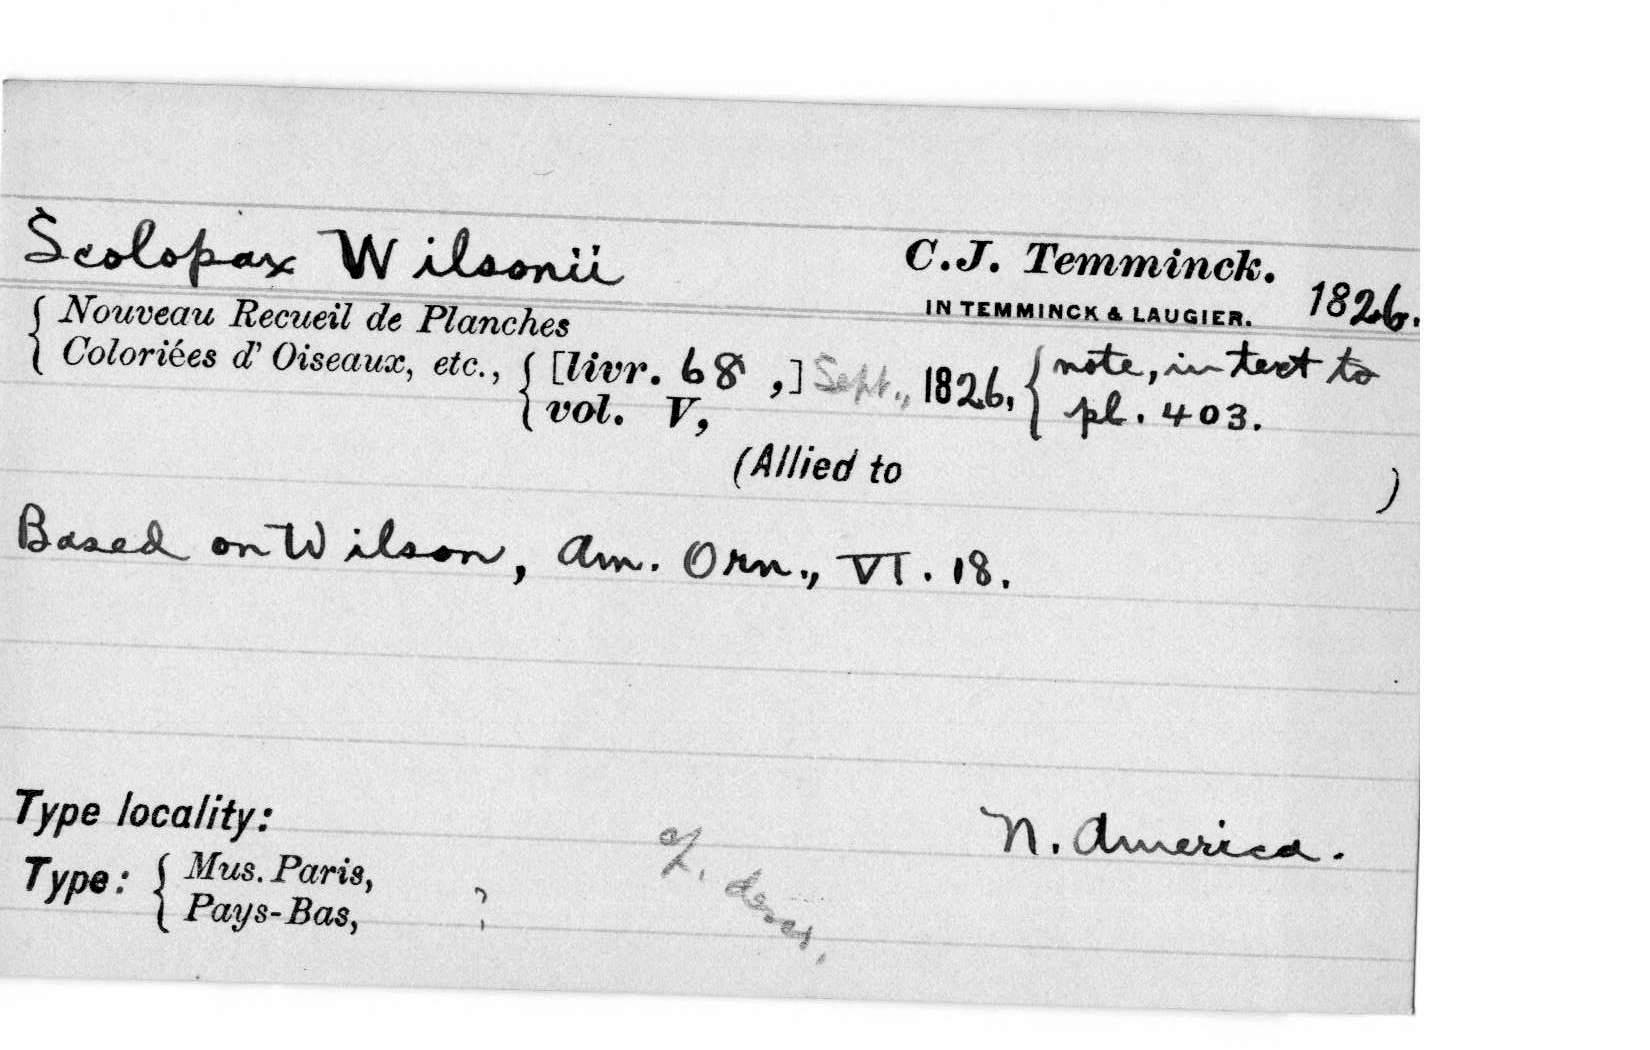 Scolopax Wilsonii C.J. Temminck. 1826.
IN TEMMINCK & LAUGIER.
Nouveau Recueil de Planches
Coloriées d' Oiseaux, etc., [livr. 68 ,] Sept., 1826, note, in text to
vol. V, pl. 403.
(Allied to )
Based on Wilson, Am. Orn., VI. 18.
Type locality: N. America.
Type: Mus. Paris,
Pays-Bas, ?